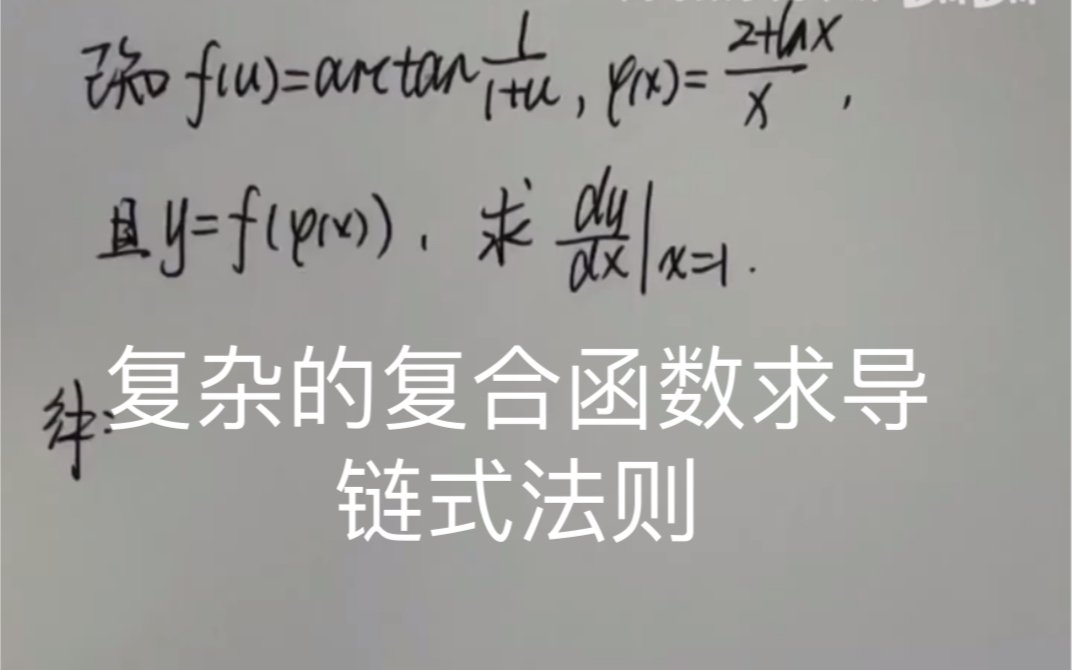 已知 f(u)=arctan 1/(1+u), φ(x)= (2+lnx)/x,
且 y=f(φ(x)). 求 dy/dx|x=1.
解:
复杂的复合函数求导
链式法则